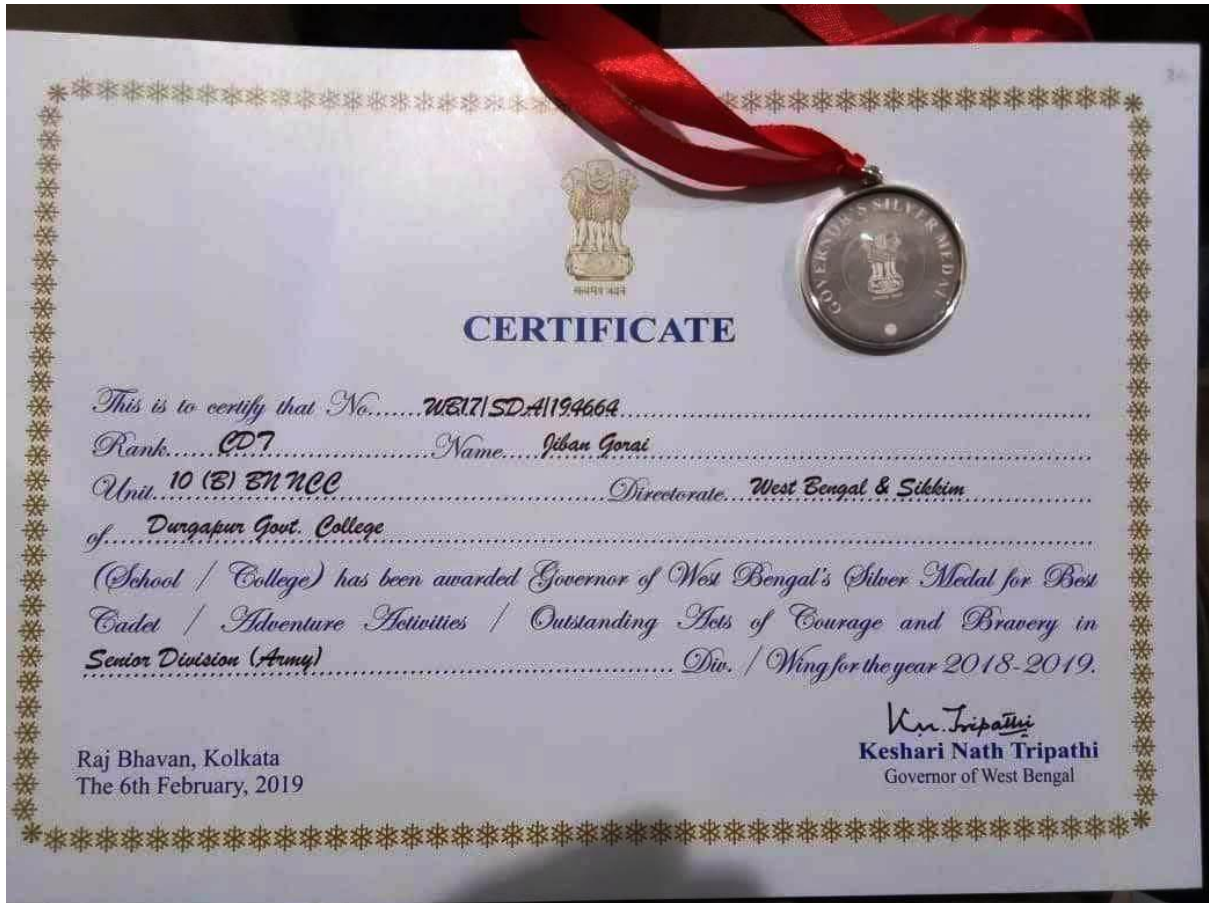 सत्यमेव जयते
GOVERNOR'S SILVER MEDAL
CERTIFICATE
This is to certify that No......WB17/SDA/194664
Rank......CDT......Name....Jiban Gorai
Unit..10 (B) BN NCC......Directorate...West Bengal & Sikkim
of.....Durgapur Govt. College
(School / College) has been awarded Governor of West Bengal's Silver Medal for Best
Cadet / Adventure Activities / Outstanding Acts of Courage and Bravery in
Senior Division (Army)......Div. / Wing for the year 2018-2019.
Kn. Tripathi
Raj Bhavan, Kolkata
The 6th February, 2019
Keshari Nath Tripathi
Governor of West Bengal